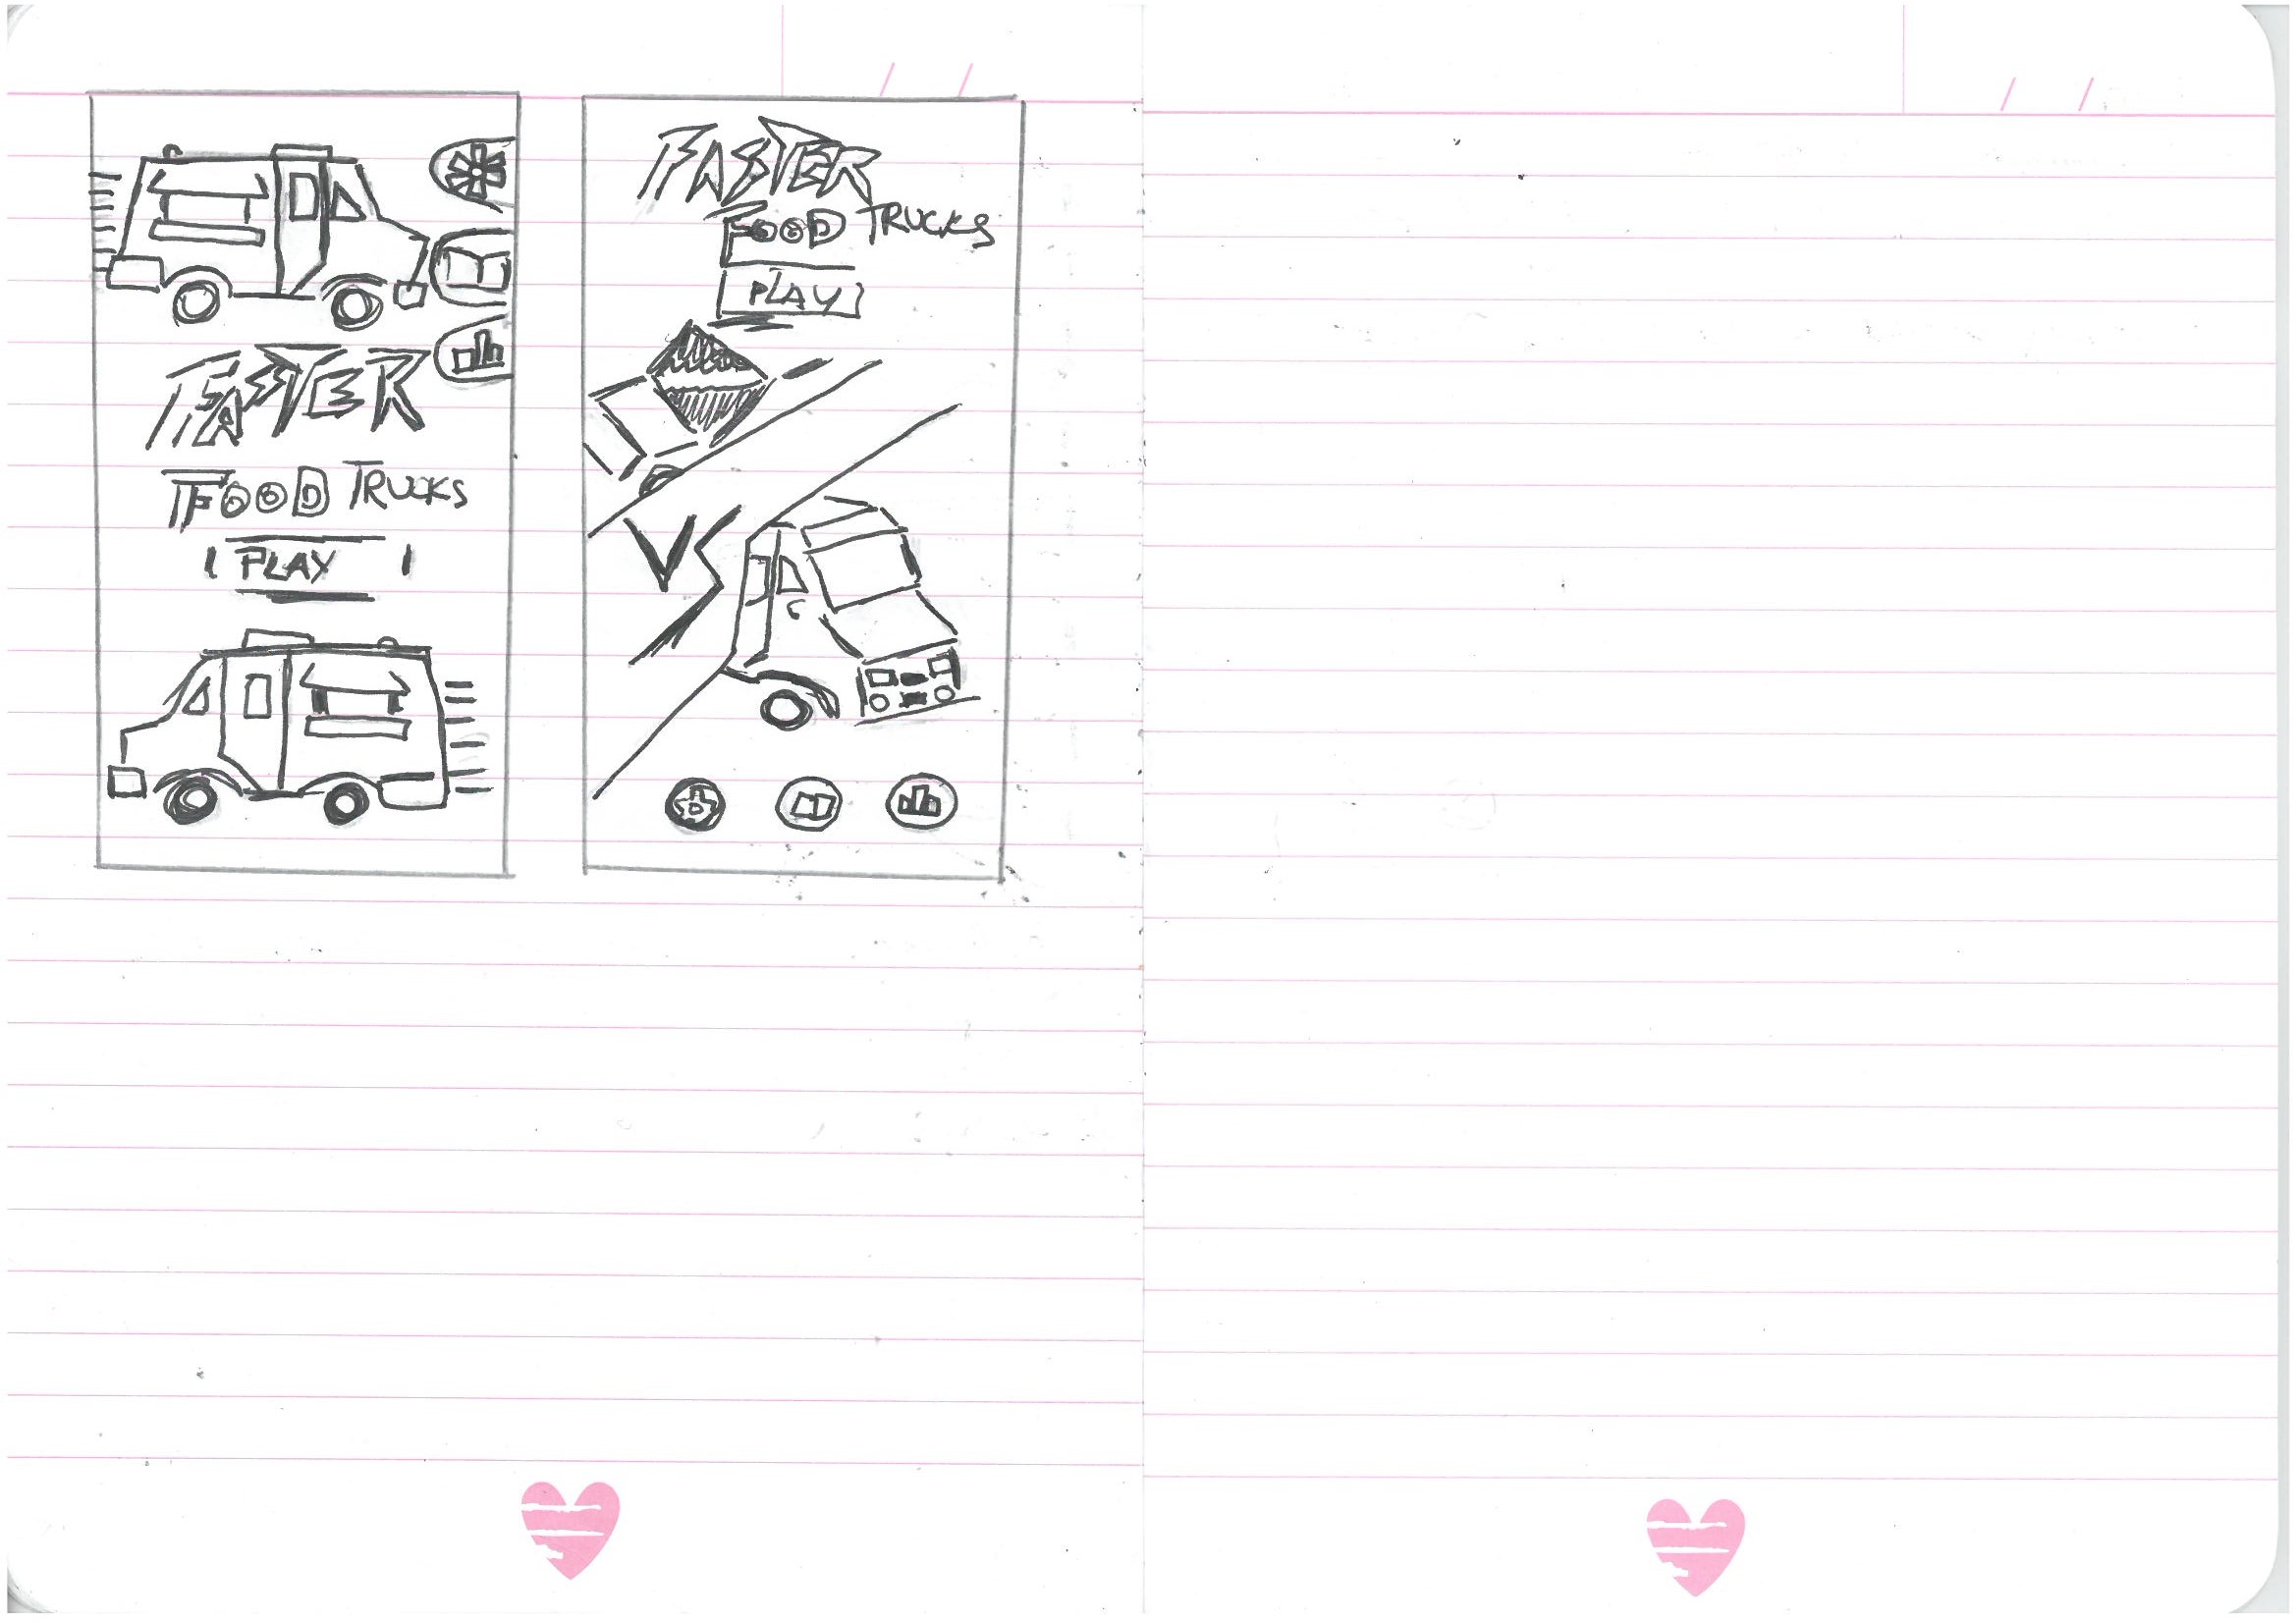 FASTER
FOOD TRUCKS
PLAY
FASTER
FOOD TRUCKS
PLAY
VS